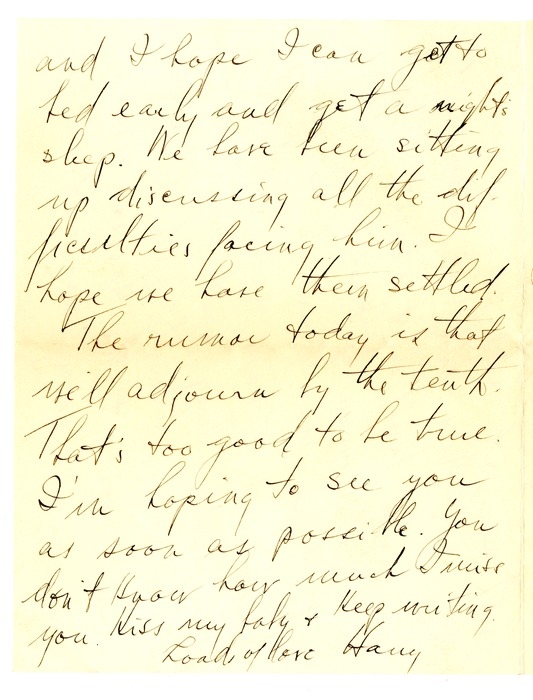 and I hope I can get to
bed early and get a night's
sleep. We have been sitting
up discussing all the dif-
ficulties facing him. I
hope we have them settled.
The rumor today is that
we'll adjourn by the tenth.
That's too good to be true.
I'm hoping to see you
as soon as possible. You
don't know how much I miss
you. Kiss my baby & keep writing.
Loads of love Harry